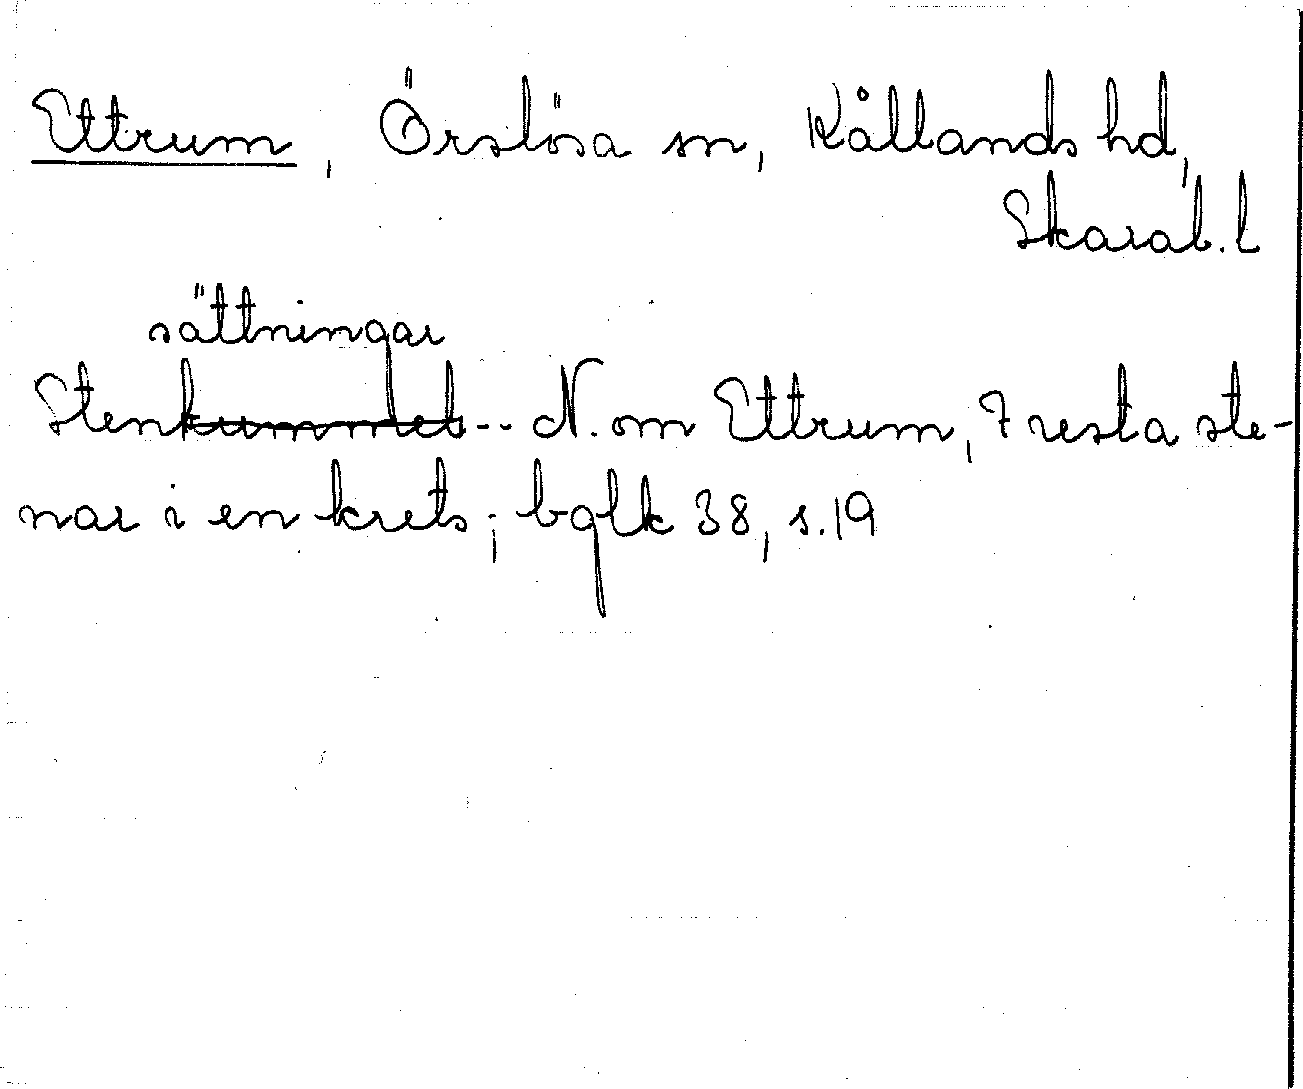 Ettrum, Örslösa sn, Kållands hd,
Skarab. l
sättningar
Stenkummlet -- N. om Ettrum, 7 resta ste-
nar i en krets; bglk 38, s. 19